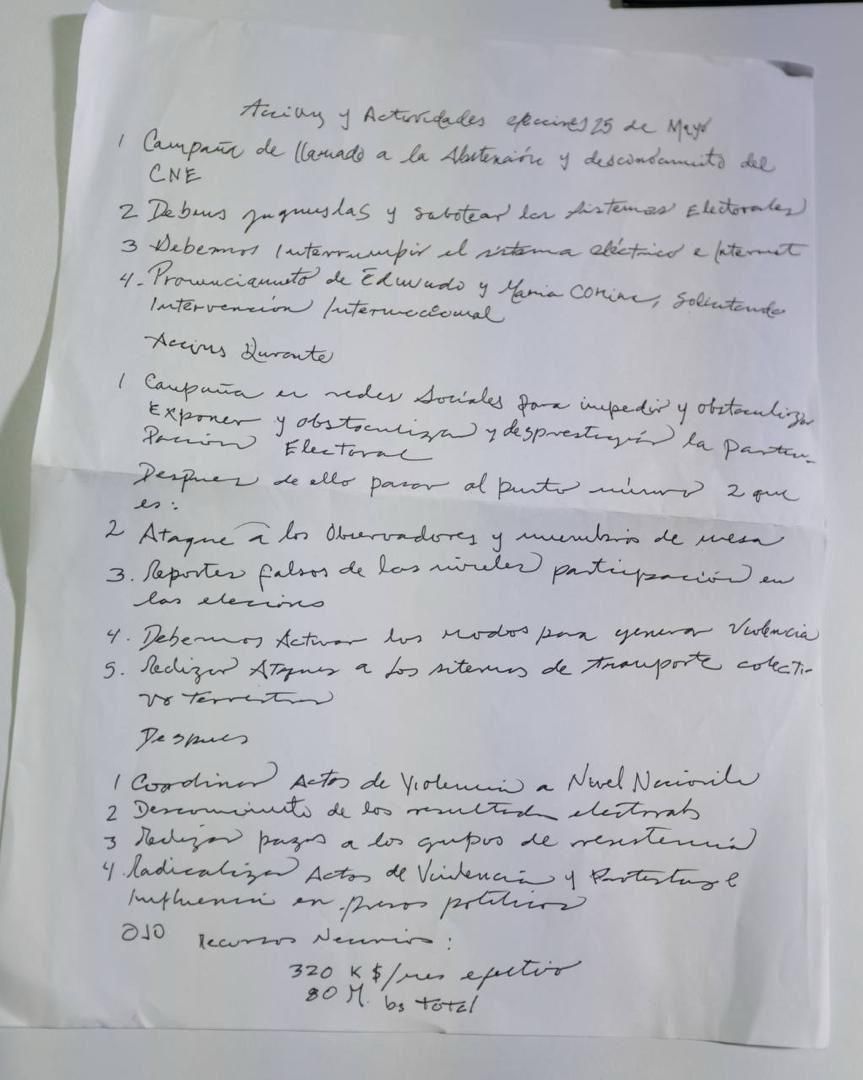 y Actividades 25 de Mayo
1 Campaña de llamado a la Abstención y desconocimiento del
CNE
2 Debemos y sabotear los sistemas Electorales
3 Debemos Interrumpir el sistema eléctrico e Internet
4. Pronunciamiento de Eduardo y Maria Corina, solicitando
Intervención Internacional
Durante
1 Campaña en redes Sociales para impedir y obstaculizar
Exponer y obstaculizar y desprestigiar la Partici-
pación Electoral
Despues de ello pasar al punto número 2 que
es:
2 Ataque a los Observadores y miembros de mesa
3. Reportes falsos de los niveles participación en
las elecciones
4. Debemos Activar los para generar Violencia
5. Realizar Ataques a los sitemas de transporte colecti-
vo terrestre
Despues
1 Coordinar Actos de Violencia a Nivel Nacional
2 Desconocimiento de los resultados electorales
3 Realizar pagos a los grupos de resistencia
4. Radicalizar Actos de Violencia y Protestas e
Influencia en presos politicos
OJO Recursos Necesarios:
320 K $/mes efectivo
80 M. bs total